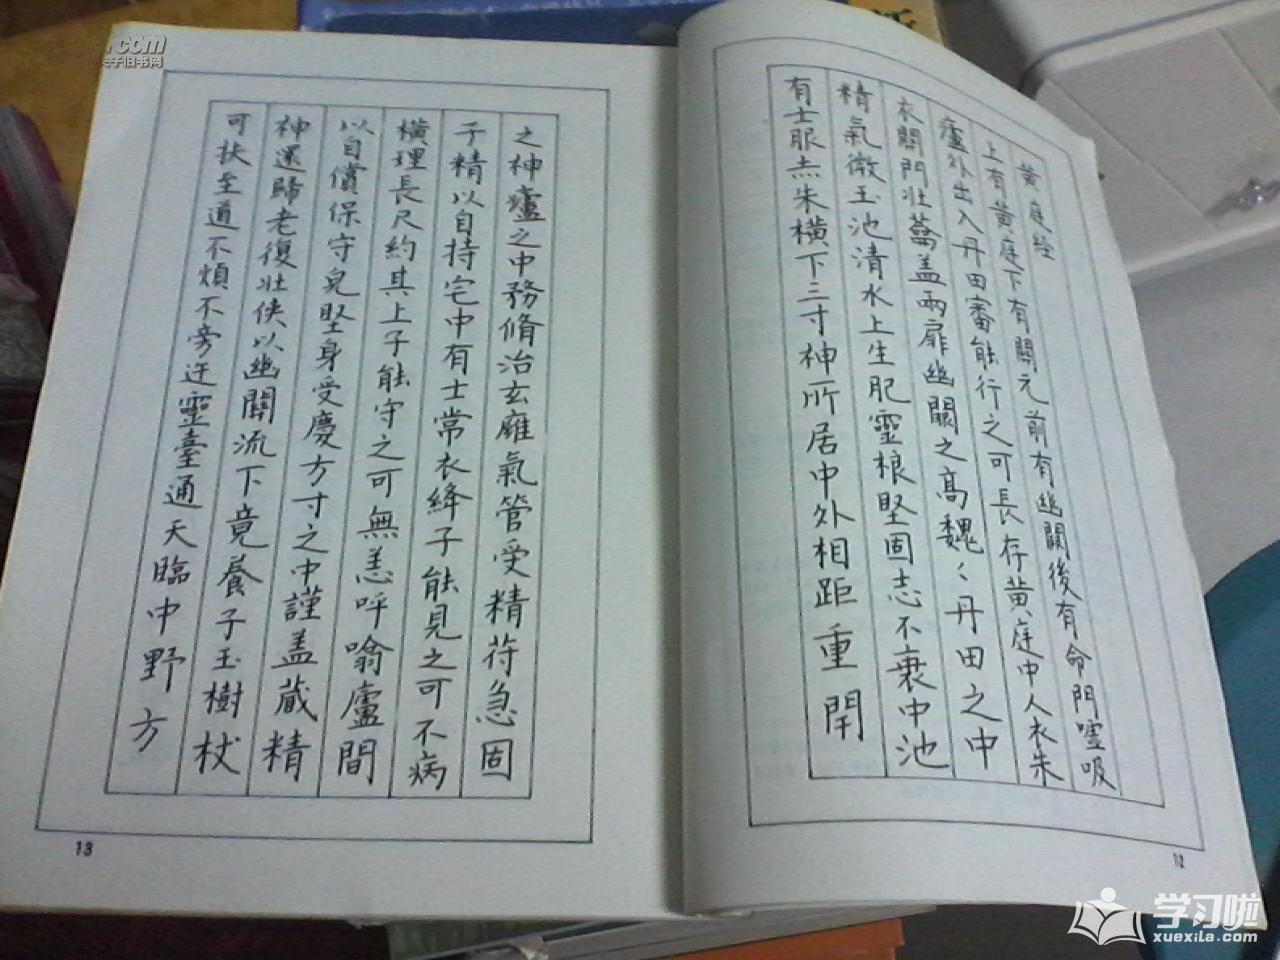 黃庭经
上有黃庭下有關元前有幽闕後有命門噓吸
廬外出入丹田審能行之可長存黃庭中人衣朱
衣關門壯蘥盖兩扉幽闕之高魏〻丹田之中
精氣微玉池清水上生肥靈根堅固志不衰中池
有士服赤朱橫下三寸神所居中外相距重閇
之神廬之中務脩治玄癰氣管受精符急固
子精以自持宅中有士常衣絳子能見之可不病
橫理長尺約其上子能守之可無恙呼噏廬間
以自償保守皃堅身受慶方寸之中謹盖藏精
神還歸老復壯俠以幽闕流下竟養子玉樹杖
可扶至道不煩不旁迕靈臺通天臨中野方
13
12
.com
夫子旧书网
学习啦
xuexila.com